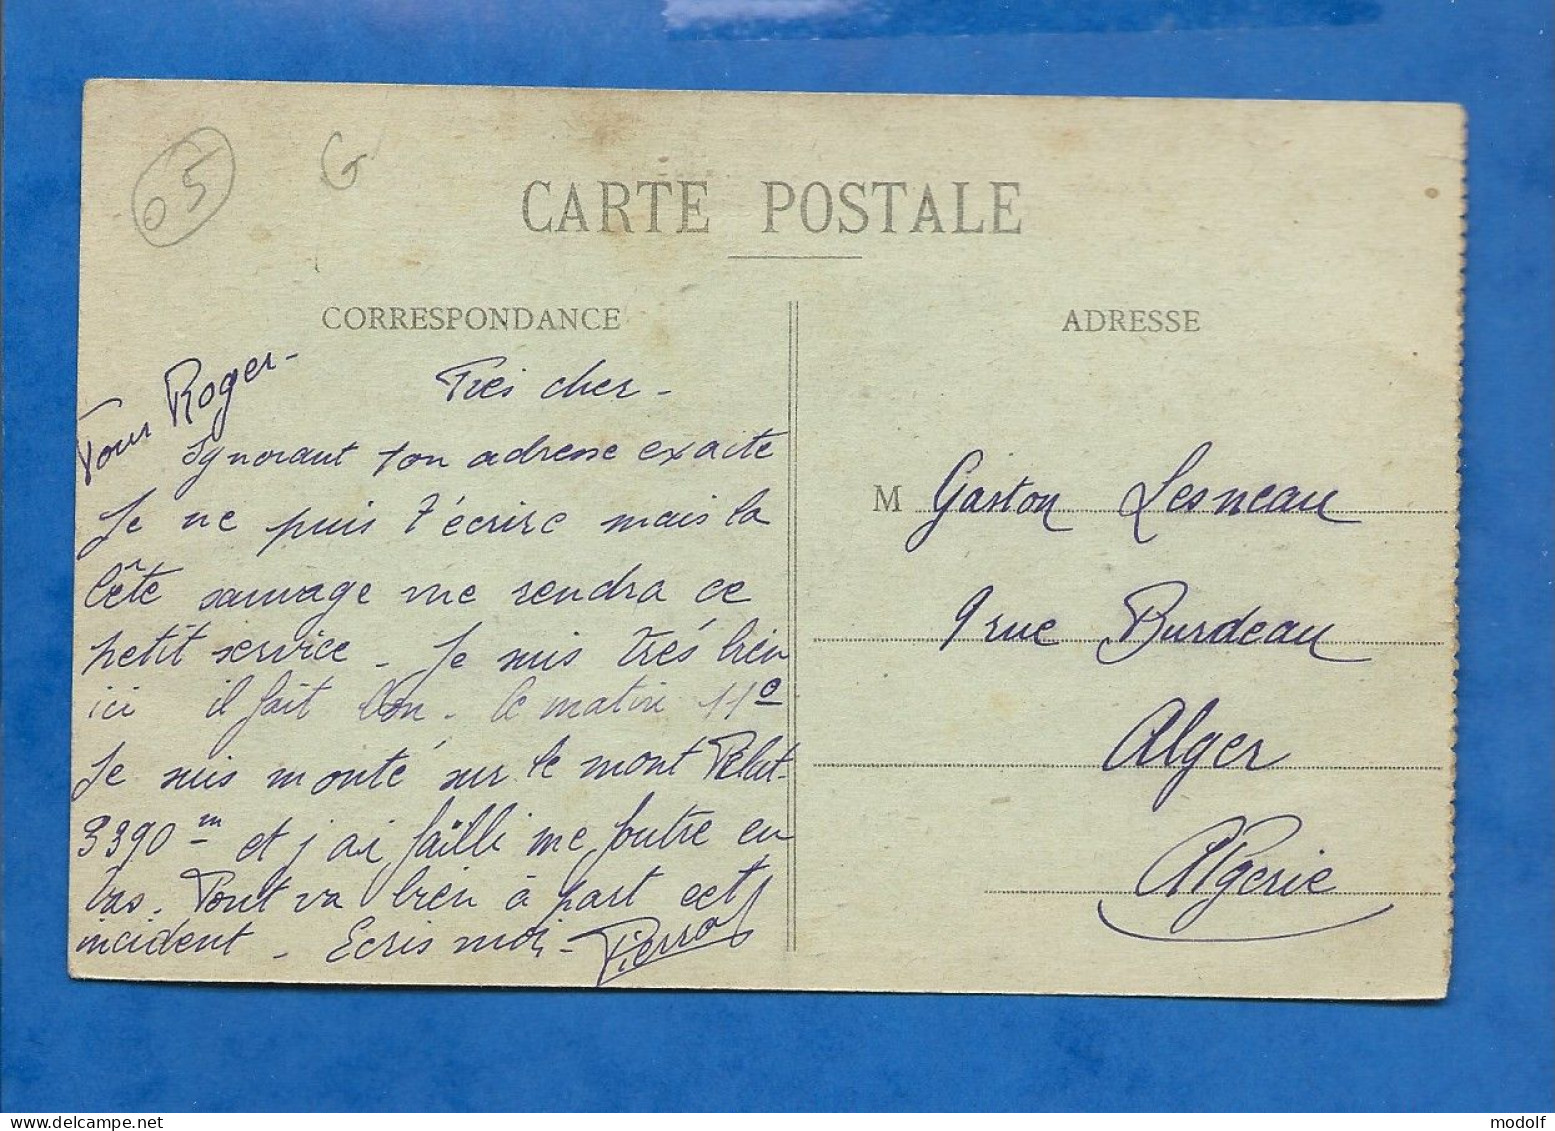 05
G
CARTE POSTALE
CORRESPONDANCE
ADRESSE
Pour Roger -
Très cher -
Ignorant ton adresse exacte
Je ne puis t'écrire mais la
bête sauvage me rendra ce
petit service - Je suis très bien
ici il fait bon - le matin 11°
Je suis monté sur le mont Pelat -
3390 m et j'ai failli me foutre en
bas. Tout va bien à part cet
incident - Ecris moi - Pierrot
M Gaston Lesneau
9 rue Burdeau
Alger
Algérie
www.delcampe.net
modolf